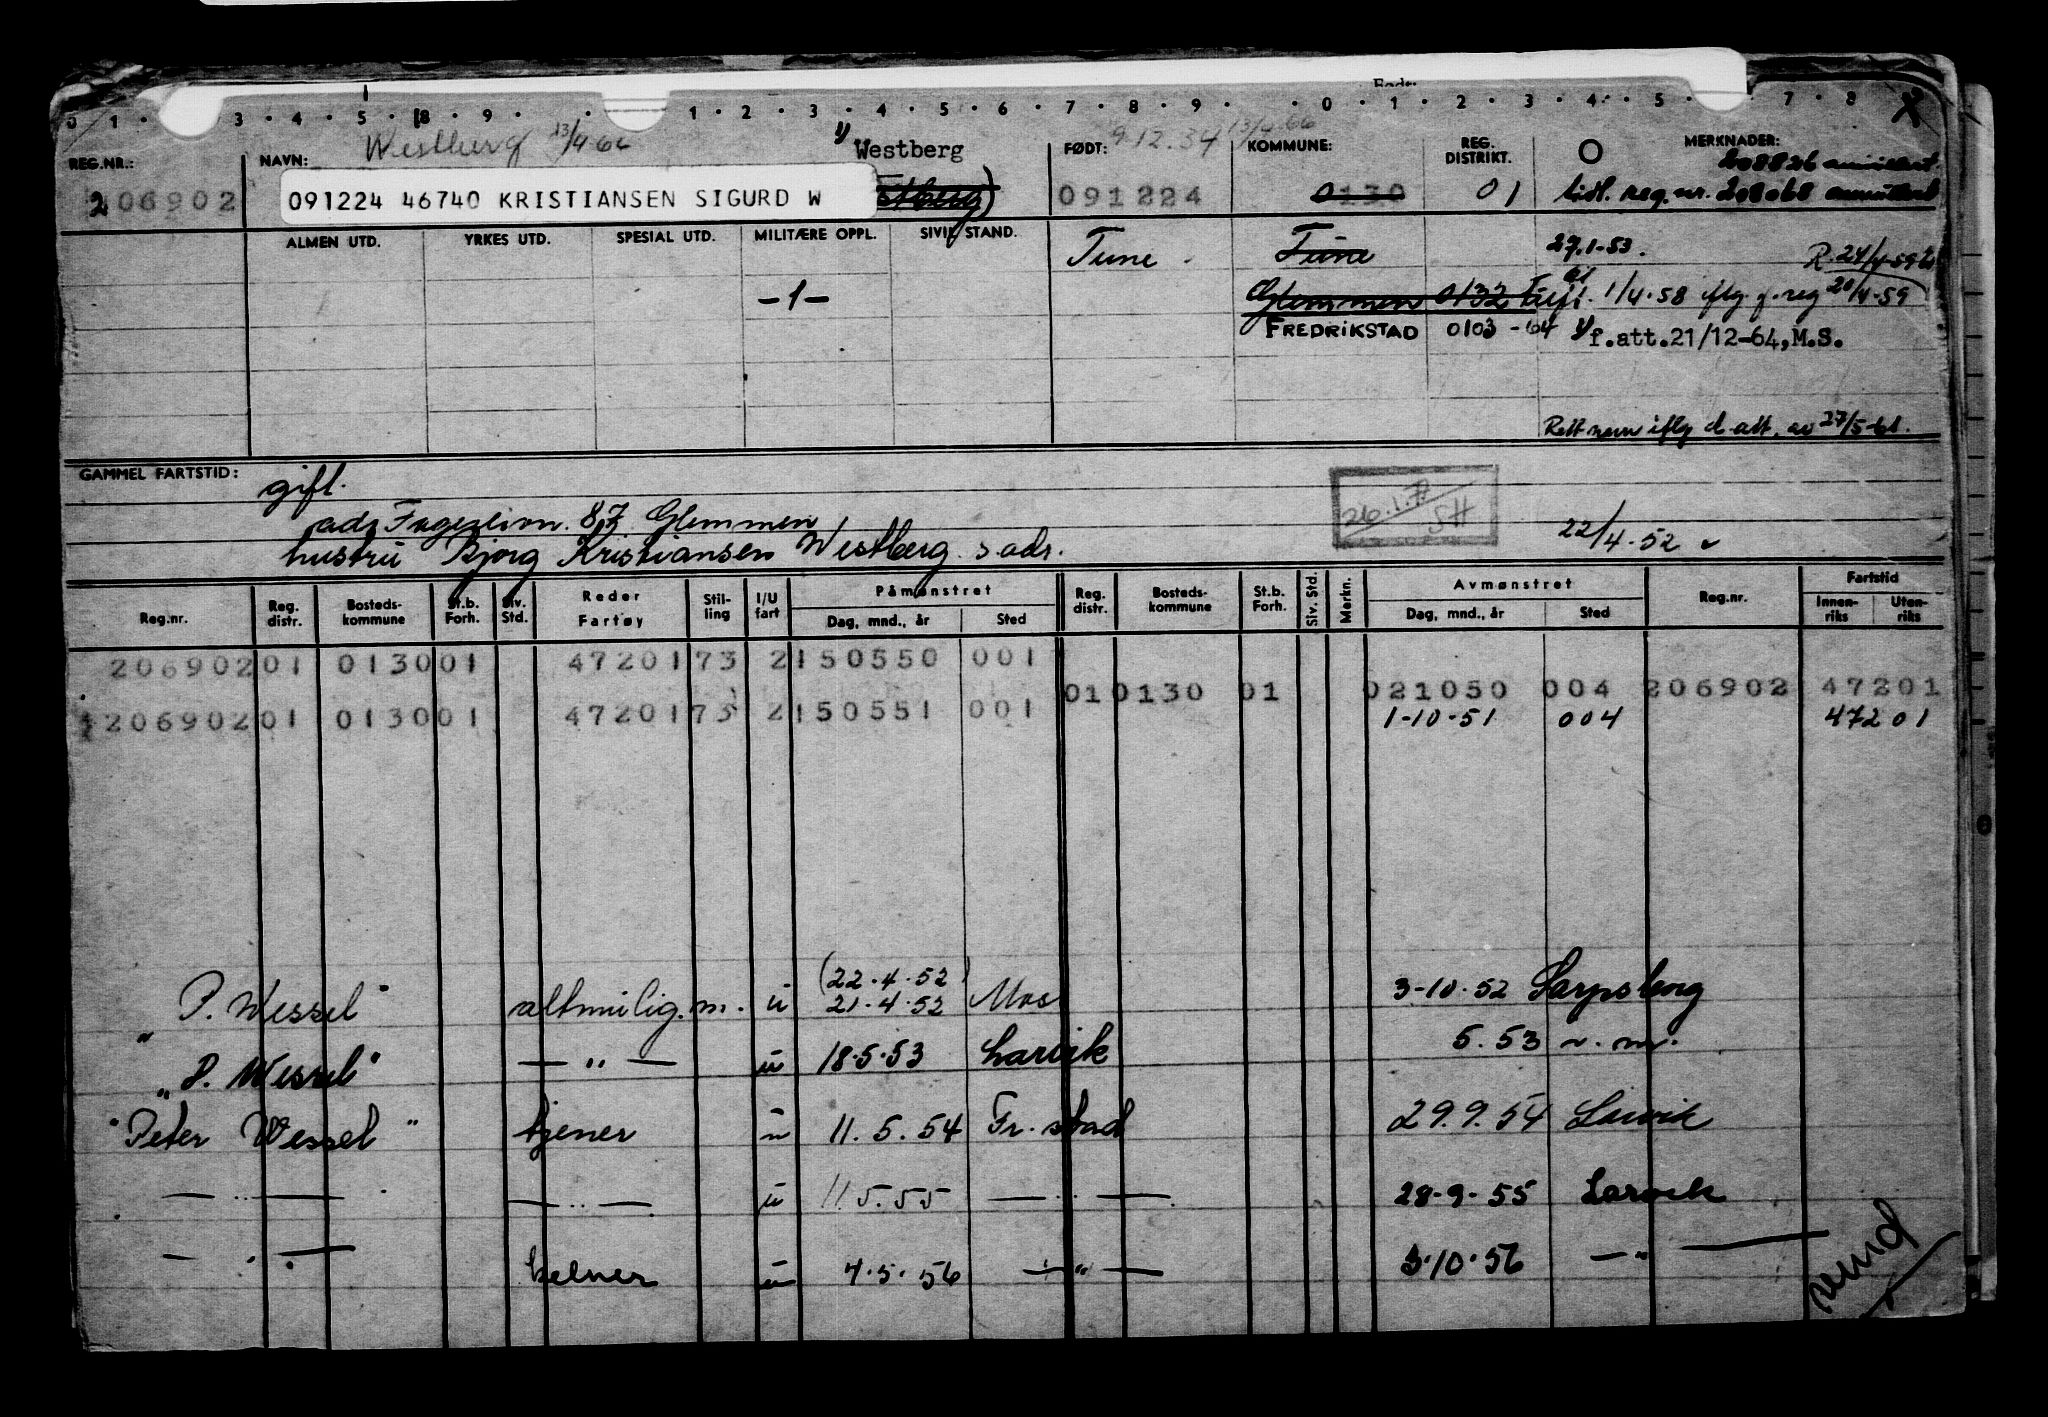 Født:
0 1 3 4 5 8 9 1 2 3 4 5 6 7 8 9 0 1 2 3 4 5 7 8
Westberg 13/4-66 1/ Westberg 9.12.34 13/4-66
REG.NR.: NAVN: FØDT: KOMMUNE: REG. DISTRIKT. MERKNADER:
208826 annullert
206902 091224 46740 KRISTIANSEN SIGURD W 091224 0130 01 tidl. reg.nr. 208068 annullert
ALMEN UTD. YRKES UTD. SPESIAL UTD. MILITÆRE OPPL. SIVIL STAND.
Tune Tune 27.1-53. R. 24/4-59
-1- Glemmen 0132 1/4.58 iflg f.reg 20/4-59
FREDRIKSTAD 0103 -64 1/ f.att.21/12-64,M.S.
Rett navn iflg d.att. av 27/5-61.
GAMMEL FARTSTID: gift.
adr 87 Glemmen 26.1.77 SH
hustru Bjørg Kristiansen Westberg s.adr. 22/4.52
Reg.nr. Reg. distr. Bosteds-kommune St.b. Forh. Siv. Std. Reder Fartøy Stil-ling I/U fart Påmønstret Dag, mnd., år Sted Reg. distr. Bosteds-kommune St.b. Forh. Siv. Std. Merkn. Avmønstret Dag, mnd., år Sted Reg.nr. Fartstid Innen-riks Uten-riks
206902 01 0130 01 47201 73 2 150550 001
01 0130 01 021050 004 206902 47201
206902 01 0130 01 47201 73 2 150551 001 1-10-51 004 47201
(22.4.52)
"P. Wessel" altmulig.m. u 21.4.52 Mos 3-10.52 Sarpsborg
"P. Wessel" — " — u 18.5.53 Larvik 5.53 n.m.
"Peter Wessel" tjener u 11.5.54 Fr.stad 29.9.54 Larvik
— " — — " — u 11.5.55 — " — 28-9-55 Larvik
— " — kelner u 4.5.56 — " — 3.10.56 — " —